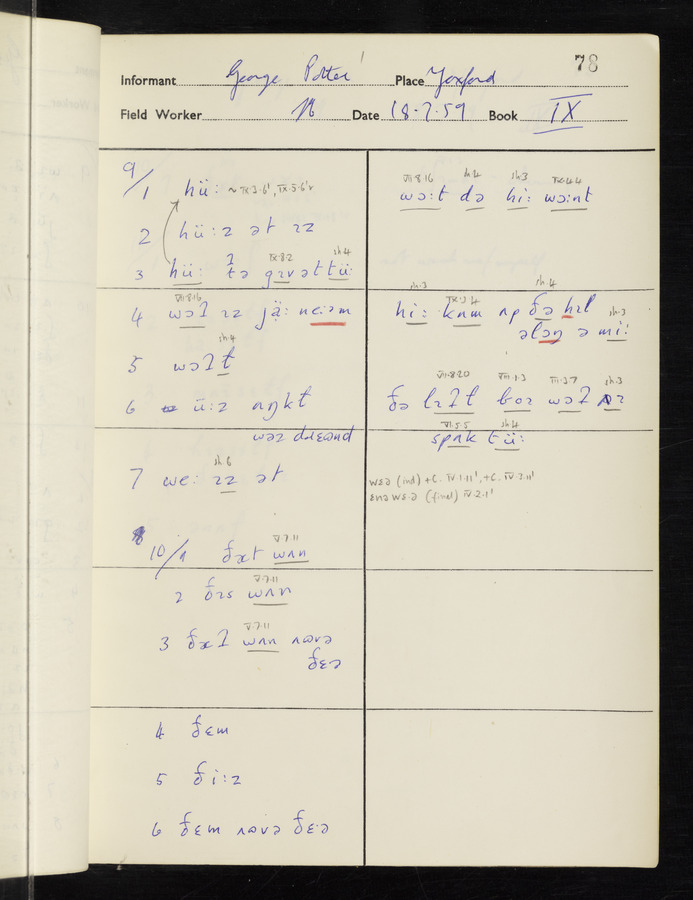 78
Informant George Potter Place Yoxford
Field Worker Date 18.7.59 Book IX
9/1 hü: ~ IX.3.6', IX.5.6'v
2 hü:z ət ɪz
IX.8.2 sh.4
3 hü: gɪv ət tü:
VII.8.16
4 wɒʔ ɪz jä: neːəm
sh.4
5 wɒʔ t
6 ü:z ɒŋkt
wɒz dɹɛənd
sh.6
7 we: ɪz ət
V.7.11
10/1 ðæt wʌn
V.7.11
2 ðɪs wʌn
V.7.11
3 ðæʔ wʌn ʌɒvə
ðɛə
4 ðɛm
5 ði:z
6 ðɛm ʌɒvə ðɛ·ə
VII.8.16 sh.4 sh.3 IX.4.4
wɔ:t də hi: wɔ:nt
sh.3 IX.3.4 sh.4
hi: kʌm ʌp ðə hɪl
sh.3
əlɒŋ ə mi:
VII.8.20 VIII.1.3 III.3.7 sh.3
ðə lɪʔl bɒɪ wɒʔ
VI.5.5 sh.4
spʌk tü:
wɛə (ind) +C. IV.1.11', +C. IV.2.11'
ɛnə wɛ·ə (final) IV.2.1'